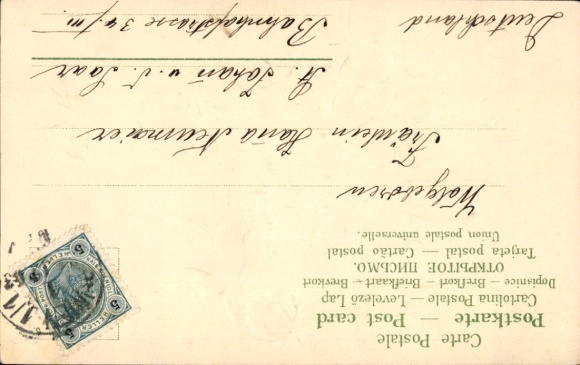 Carte Postale
Postkarte — Post card
Cartolina Postale — Levelező Lap
Dopisnice — Brefkort — Briefkaart — Brevkort
ОТКРЫТОЕ ПИСЬМО.
Tarjeta postal — Cartão postal
Union postale universelle.
5 5 5 5
1/1
Wolgeboren
Fräulein Neumaier
St. Johann a. d. Saar
Bahnhofstrasse 34/III
Deutschland